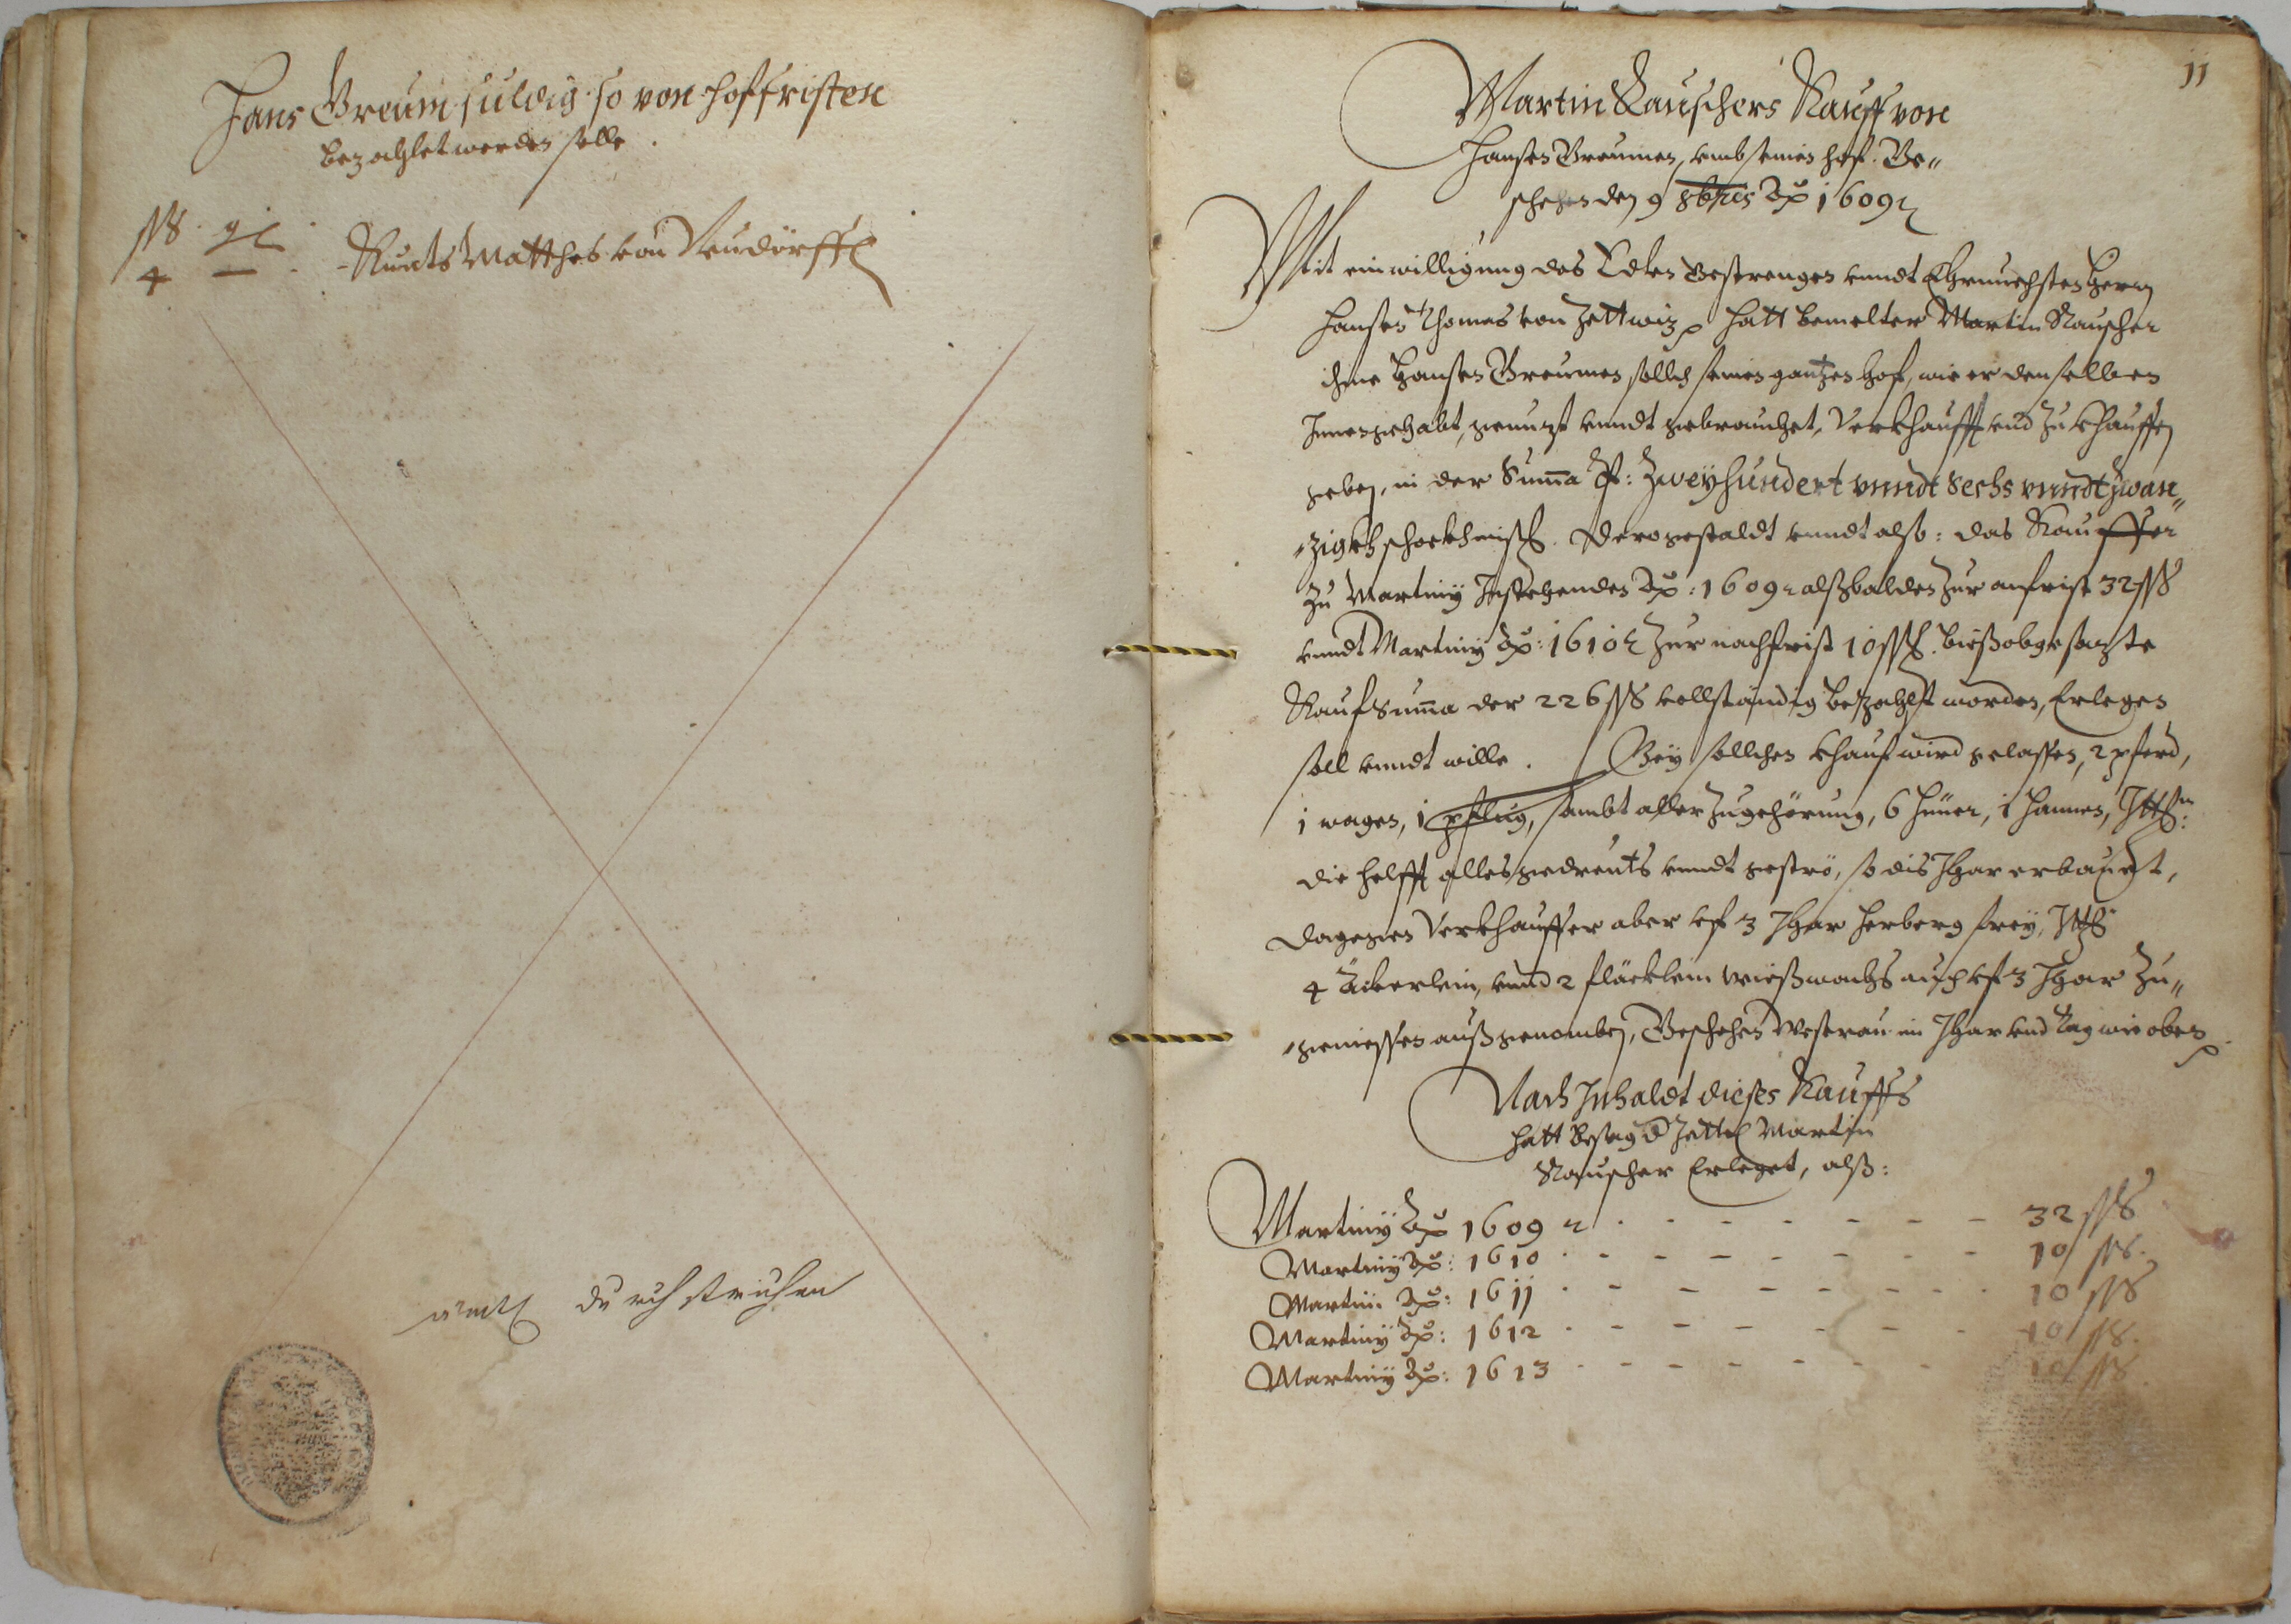 Hans Breum suldig so von hoffristen
bezahlet werden solle.
ßß gl
4 — Kunts Matthes von Neudörffl
durchstrichen
11
Martin Rauschers Kauff von
Hansen Breumen, umb seinen hof. Be„
schehen den 9 8bris Ao 1609
Mit einwilligung des Edlen Gestrengen unndt Ehrnuehsten Herrn
Hansen Thomas von Zettwiz hatt bemelter Martin Rauscher
ihme Hansen Breumen sollch seinen gantzen hof, wie er denselben
Innengehabt, genuzt unndt gebrauchet, Verkhaufft und zu khauffen
geben, in der Suma Zweyhundert vnndt Sechs vnndt zwan„
„zigkh schockh meiß. Dero gestaldt unndt alß: das Kauffer
zu Martiny Instehendes Ao: 1609 alßbalden zur anfrist 32 ßß
unndt Martiny Ao: 1610 zur nachfrist 10 ßß. bieß obgesazte
Kaufsuma der 226 ßß vollständig bezahlt worden, Erlegen
soll unndt wille. Bey sollchen khauf wird gelassen, 2 pferd,
1 wagen, 1 pflug, sambt aller Zugehörung, 6 Hüner, 1 Hannen, Ittem:
die helfft alles gedreuts unndt geströ, so dis Jhar erbauet,
dagegen Verkhauffer aber uf 3 Jhar herberg frey, Ittem
4 Äckerlein, unnd 2 fläcklein wießwachs auch uf 3 Jhar zu„
„geniessen außgenomben, Beschehen Westrau im Jhar und tag wie oben
Nach Inhaldt dieses Kauffs
hatt besag d Zettl Martin
Rauscher Erleget, alß:
Martiny Ao 1609 - - - - - - - 32 ßß
Martiny Ao: 1610 - - - - - - - 10 ßß.
Martini Ao: 1611 - - - - - - - 10 ßß
Martiny Ao: 1612 - - - - - - - 10 ßß.
Martiny Ao: 1613 - - - - - - - 10 ßß